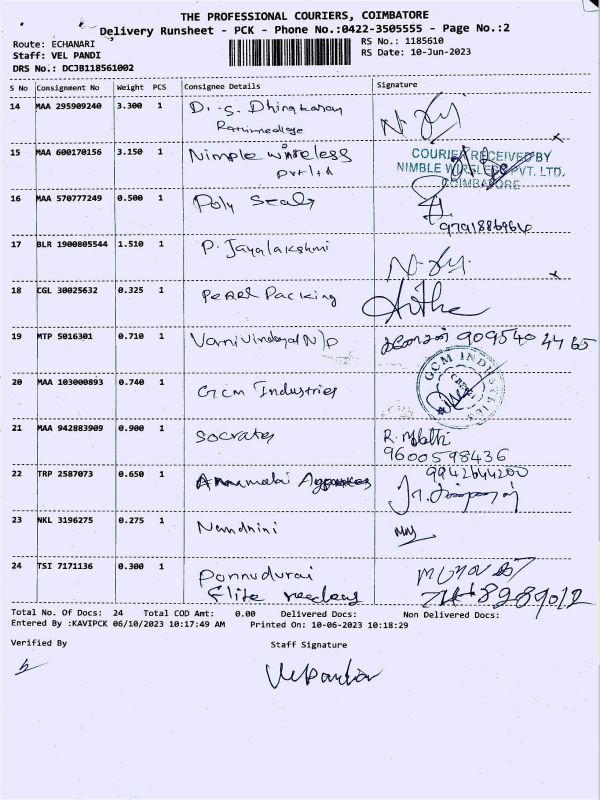 THE PROFESSIONAL COURIERS, COIMBATORE
Delivery Runsheet - PCK - Phone No.:0422-3505555 - Page No.:2
Route: ECHANARI
RS No.: 1185610
Staff: VEL PANDI
RS Date: 10-Jun-2023
DRS No.: DCJB118561002
S No Consignment No Weight PCS Consignee Details Signature
14 MAA 295909240 3.300 1
15 MAA 600170156 3.150 1 Nimple wireless
pvt ltd
COURIER RECEIVED BY
NIMBLE WIRELESS PVT. LTD.
COIMBATORE
16 MAA 570777249 0.500 1 Poly Seals
9791886964
17 BLR 1900805544 1.510 1 P. Jayalakshmi
18 CGL 30025632 0.325 1 Pearl Packing
19 MTP 5016301 0.710 1 9095404765
20 MAA 103000893 0.740 1 Gcm Industries
GCM INDUSTRIES
21 MAA 942883909 0.900 1 Socrates
9600598436
22 TRP 2587073 0.650 1 Annamalai
9942644200
23 NKL 3196275 0.275 1 Nandhini
24 TSI 7171136 0.300 1 Ponnudurai
Elite
Total No. Of Docs: 24 Total COD Amt: 0.00 Delivered Docs: Non Delivered Docs:
Entered By :KAVIPCK 06/10/2023 10:17:49 AM Printed On: 10-06-2023 10:18:29
Verified By Staff Signature